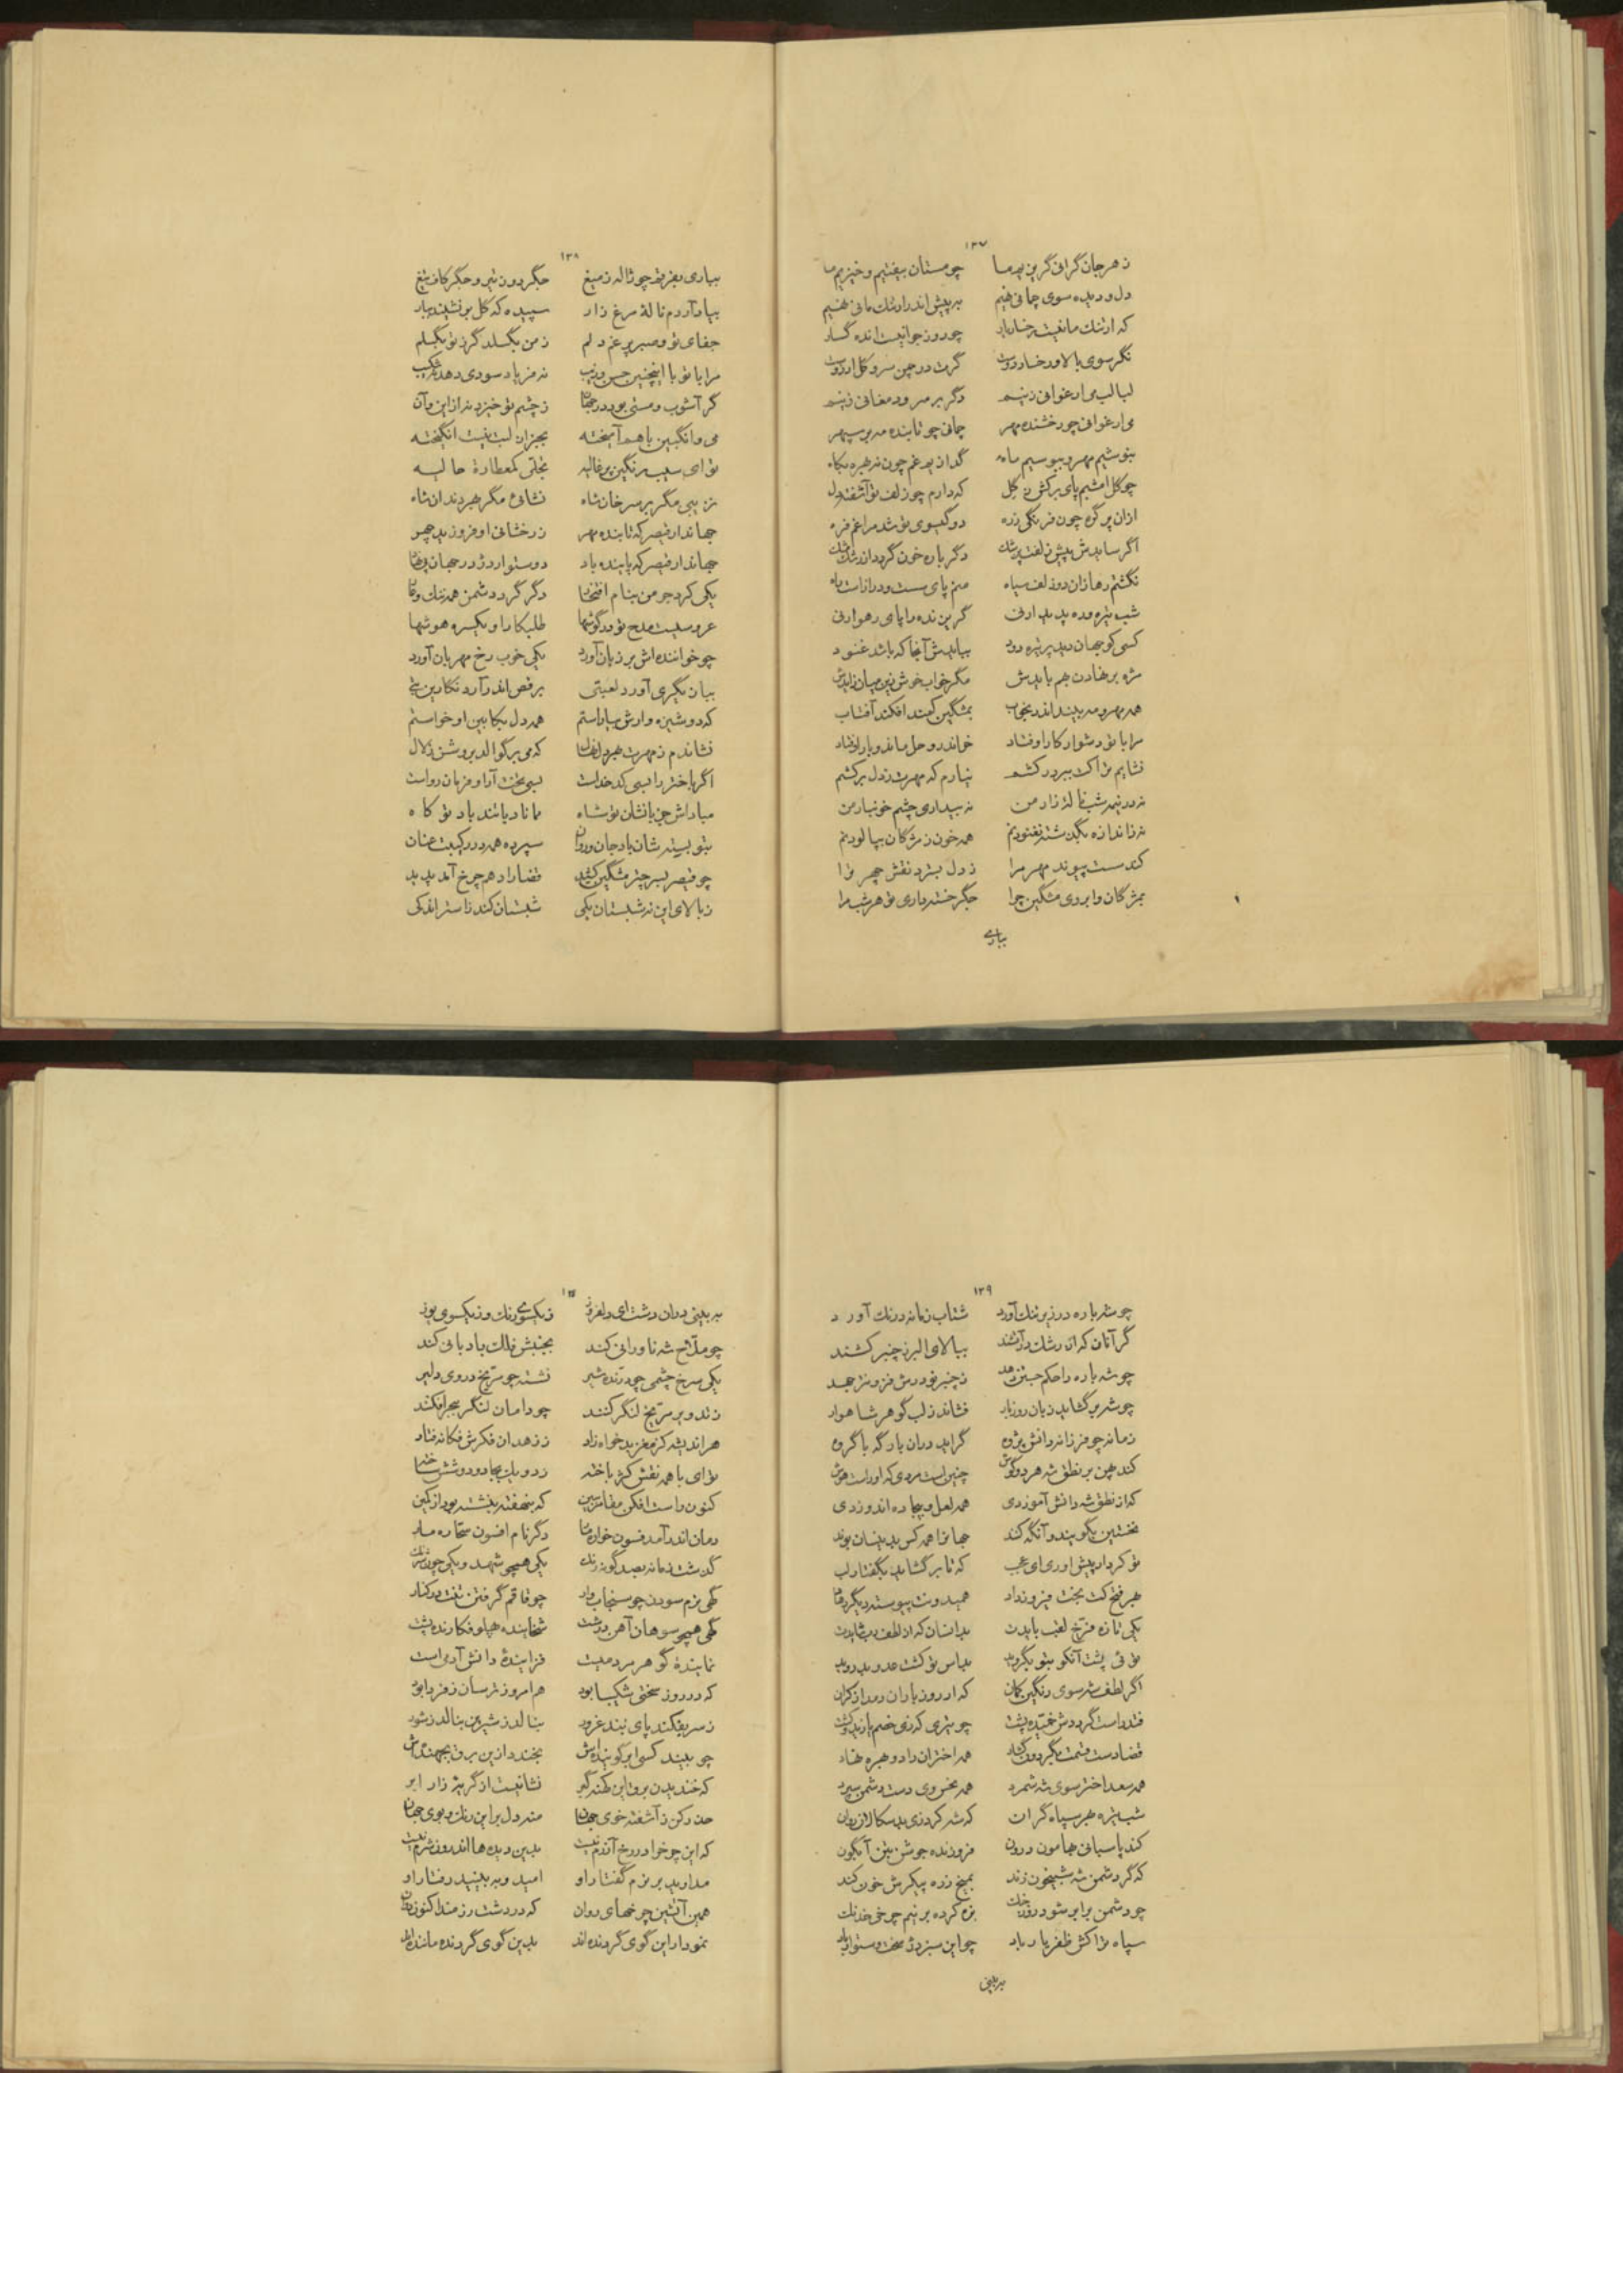 ۱۳۷
ز هر جان گرانی گریزیم ما چو مستان بیفتیم و خیزیم ما
دل و دیده سوی چمانی نهیم به پیش اندر ارتنگ مانی نهیم
که ارتنگ مانیست رخسار یار چو روز جوانیست انده گسار
نگر سوی بالا و رخسار دوست گرت در چمن سرو و گل آرزوست
لبالب می ارغوانی زنیم دگر بر سرود مغانی زنیم
می ارغوانی چو رخشنده مهر چمانی چو تابنده مه بر سپهر
بنوشیم مهر و ببوسیم ماه گدازیم غم چون به تیره
چو گل امشبم پای برکش ز گل که دارم چو زلف تو آشفته دل
ازان پر گره چون فرنگی زره دو گیسوی تو شد مرا غم فزه
اگر سایدش پیش زلفت پزشک دگر باره خون گردد از رشک مشک
نگشتم رها زان دو زلف سیاه منم پای سست و دراز است راه
شب تیره و ره پدیدار نی گریزنده را پای رهوار نی
کسی کو جهان دید پر تیره دود بیایدش آنجا که باشد غنود
مژه بر نهادن بهم بایدش مگر خواب خوش زین میان زایدش
همه مهر و مه بیند اندر بخواب بمشگین کمند افکند آفتاب
مرا با تو دشوار کار اوفتاد خر اندر وحل ماند و بار اوفتاد
نشایم ترا کت ببر در کشم نیارم که مهرت ز دل برکشم
نه در نیمه شب نالهٔ زار من نه بیداری چشم خونبار من
نه ز اندازه بگذشته نغنودنم همه خون ز مژگان بپالودنم
کند سست پیوند مهر مرا ز دل بسترد نقش چهر ترا
بمژگان و ابروی مشگین چرا جگر خسته داری تو هر شب مرا
بباری
۱۳۸
بباری بفرقم چو ژاله ز میغ جگردوز تیر و جگرکاو تیغ
بیاد آردم نالهٔ مرغ زار سپیده که گل برنشیند ببار
جفای تو و صبر پر غم دلم ز من بگسلد گر ز تو بگسلم
مرا با تو با اینچنین حسن و زیب نه فریاد سودی دهد نه شکیب
گر آشوب و مستی بود در جهان ز چشم تو خیزد نه از این و آن
می و انگبین با هم آمیخته بجز از لبت نیست انگیخته
تو ای سیب رنگین پر غالیه بخلی کمعطارهٔ حالیه
نزیبی مگر بر سر خان شاه نشائی مگر بهر دندان شاه
جهاندار قیصر که تابنده مهر ز رخشانی او فروزید چهر
جهاندار قیصر که پاینده باد دو ستوار دژ در جهان
یکی کرد جرمن بنام افتخار دگر گرد دشمن همه ننگ و عار
عروسیست مدح تو در گوشها طلبکار او یکسره هوشها
چو خواننده‌اش بر زبان آورد یکی خوب رخ مهربان آورد
بیان بگیری آورد لعبتی برقص اندر آرد نگارین
که دوشیزه وارش بیاراستم همه دل بکابین او خواستم
نشاندم ز مهرت بهر دل نهال که می برگوالد بروشن زلال
اگر باختر را بسی کدخداست بسی تخت آرا و فرمان رواست
مبادا ش جز با نشان تو شاه مانا دیا بند باد تو کاه
بتو بسته شان باد جان و روان سپرده همه در رکیبت عنان
چو قیصر بسر چتر مشگین کشید قضا را دهم چرخ آمد پدید
ز بالای این نه شبستان یکی شبستان کند ز استر اندکی
۱۳۹
چو شه باره در زیر تنگ آورد شتاب زمانه درنگ آورد
گر آنان که از رشک در آتشند ببالای البرز چنبر کشند
چو شه باره را حکم جستن دهد ز چنبر نوردش فزونتر جهد
چو شه برگشاید زبان روز بار فشاند ز لب گوهر شاهوار
زمانه چو فرزانه دانش پژوه گراید دران بارگه با گروه
کند پهن بر نطق شه هر دو گوش چنین است مردی که او راست هوش
که از نطق شه دانش آموزدی همه لعل و بیجاده اندوزدی
نخستین بگویند و آنگه کند جهان را همه کس بدینسان بوند
تو کردار پیش آوری ای عجب که تا برگشاید بگفتار لب
بهر فتح کت بخت فیروز داد همیدونت پیوسته دیگر دهاد
یکی تازه فرخ لقب بایدت بدانسان که از لطف رب شایدت
توئی پشت آنکو بتو بگروید بداس تو کشت عدو بدروید
اگر لطف شه سوی رنگین کمان که از روز باران دمد از کران
فتد راست گردد ش خمیده پشت چو تیری که زی خصم یازید کشت
قضا دست قسمت بگردون گشاد همه اختران داد و بهره نهاد
همه سعد اختر سوی شه شمرد همه نحس وی دست دشمن سپرد
شب تیره بهر سپاه گران که شه کرد زی بدسگالان روان
کند پاسبانی هامون و رون فروزنده جوشن بتن آبگون
که گر دشمن شه شبیخون زند بمیخ زده پیکرش خون کند
چو دشمن برابر شود روز جنگ بزه کرده بر نیم چرخی خدنگ
سپاه ترا کش ظفر یار باد چو این سبز دژ سخت و ستوار باد
به بینی
۱۴۰
به بینی دران دشت ای دلفروز ز یکسوی رنگ و ز یکسوی یوز
چو ملاح شه ناورانی کند بجنبش فلک بادبانی کند
یکی سرخ چشمی چو درنده شیر نشسته چو مریخ در وی دلیر
زند و بر مریخ لنگر کنند چو دامان لنگر ببحر افکنند
هر اندیشه کز مغز بدخواه زاد ز زهدان فکرش فکانه فتاد
تو ای با همه نقش کژ باخته زدو یک بیجا دو و شش ساخته
کنون راست افکن مقامر ببین که بنهفته بنشسته بود از کمین
دمان اندر آمد فسون خواره مار دگر نام افسون سحاره مار
گذشت زمانه بصد گونه رنگ یکی همچو شهد و یکی چون شرنگ
گهی نرم سودن چو سنجاب وار چو قاقم گرفتن تفت در کنار
گهی همچو سوهان آهن درشت شخاینده پهلو فکارنده پشت
نمایندهٔ گوهر مردمیست فزایندهٔ دانش آدمی است
که در روز سختی شکیبا بود هم امروز ترسان ز فردا بود
ز سر بفکند پای بند غرور بنالد ز شیرین بنالد ز شور
چو بیند کسی ابر گوینداش بخندد ازین برق بجهنداش
که خندیدن برق این کهنه گبر نشانیست از گریهٔ زار ابر
حذر کن ز آشفته خوی جهان منه دل بر این رنگ و بوی جهان
که این چرخ را در رخ آزرم نیست بدین دیده‌ها اندرون شرم نیست
مدارید بر نرم گفتار او امید و به بینید رفتار او
همین آتشین چرخهای روان که در دشت رزمند اکنون روان
نمودار این گوی گردنده‌اند بدین گوی گردنده ماننده‌اند